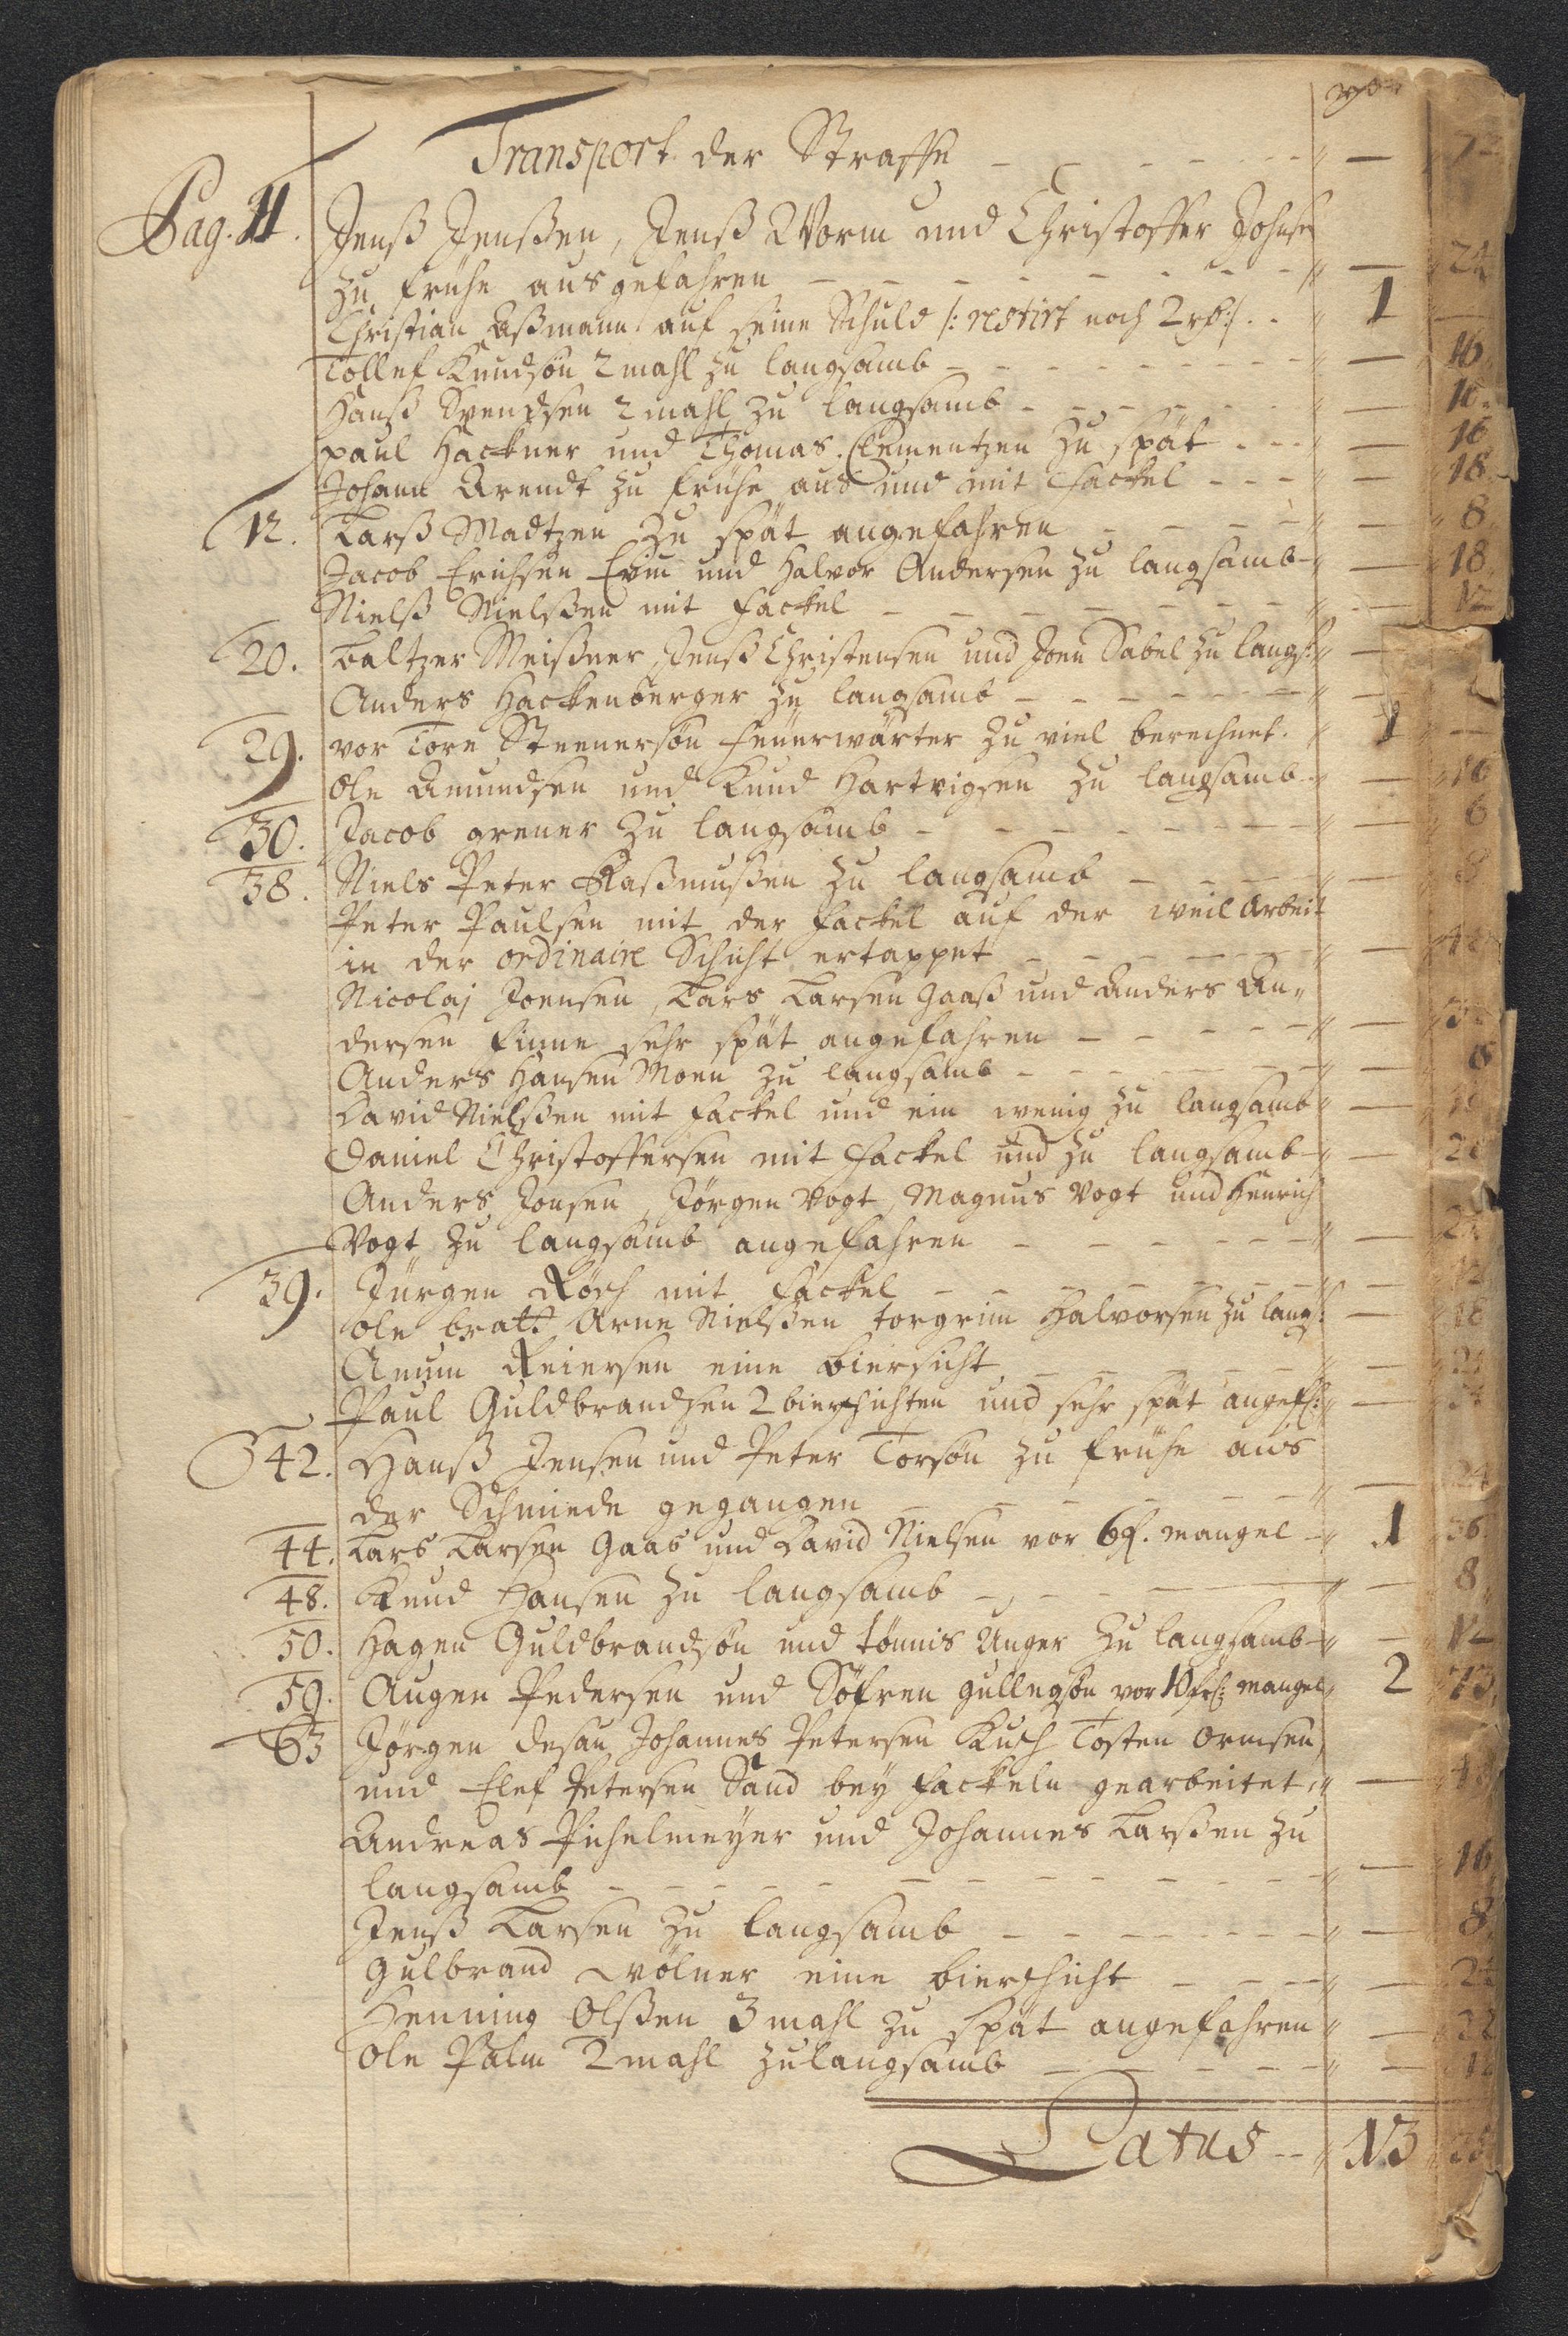 Transport der Straffe — 72
Pag. 11. Jenß Jenßen, Jenß Worm und Christoffer Johnsen
zu frühe ausgefahren — 24
Christian Aßmann auf seine Schuld /: restirt noch 2 rb :/ 1 —
Tollef Knudsön 2 mahl zu langsamb — 16
Hanß Svendsen 2 mahl zu langsamb — 16
Paul Hackner und Thomas Clementzen zu spät — 16
Johann Arendt zu frühe aus und mit Fackel — 18
12. Larß Madtzen zu spät angefahren — 8
Jacob Erichsen Lvin und Halvor Andersen zu langsamb — 18
Nielß Nielßen mit Fackel — 12
20. Baltzer Meißner, Jenß Christensen und Joen Sabel zu langs: —
Anders Hackenberger zu langsamb —
29. vor Tore Steenersön Feüerwärter zu viel berechnet. 1 —
Ole Amundsen und Knud Hartvigsen zu langsamb — 16
30. Jacob grener zu langsamb — 6
38. Niels Peter Raßmußen zu langsamb — 8
Peter Paulsen mit der Fackel auf der weil Arbeit
in der ordinaire Schicht ertappet — 12
Nicolaj Joensen, Lars Larsen Gaaß und Anders An„
dersen Finne sehr spät angefahren —
Anders Hansen Moen zu langsamb — 8
David Nielßen mit Fackel und ein wenig zu langsamb —
Daniel Christoffersen mit Fackel und zu langsamb —
Anders Jonsen, Jörgen Vogt, Magnus Vogt und Henrich
Vogt zu langsamb angefahren —
39. Jürgen Rösch mit Fackel — 12
Ole bratt Arne Nielßen torgrim Halvorsen zu langs: — 18
Anun Reiersen eine biersicht —
Paul Guldbrandsen 2 bierschichten und sehr spät angef: —
42. Hanß Jensen und Peter Torsön zu frühe aus
der Schmiede gegangen — 24
44. Lars Larsen Gaas und David Nielsen vor mangel 1 56
48. Knud Hansen zu langsamb — 8
50. Hagen Guldbrandsön und tönnis Unger zu langsamb — 12
59. Augen Pedersen und Söfren gullegsön vor 10 mangel 2 73
63 Jörgen desau Johannes Petersen Kusch Tosten Ormsen,
und Elef Petersen Sand bey Fackeln gearbeitet — 48
Andreas Pichelmeyer und Johannes Larßen zu
langsamb — 16
Jenß Larsen zu langsamb — 8
Gulbrand Wölner eine bierschicht — 24
Henning Olßen 3 mahl zu spät angefahren — 22
Ole Palm 2 mahl zu langsamb —
Latus 13 35